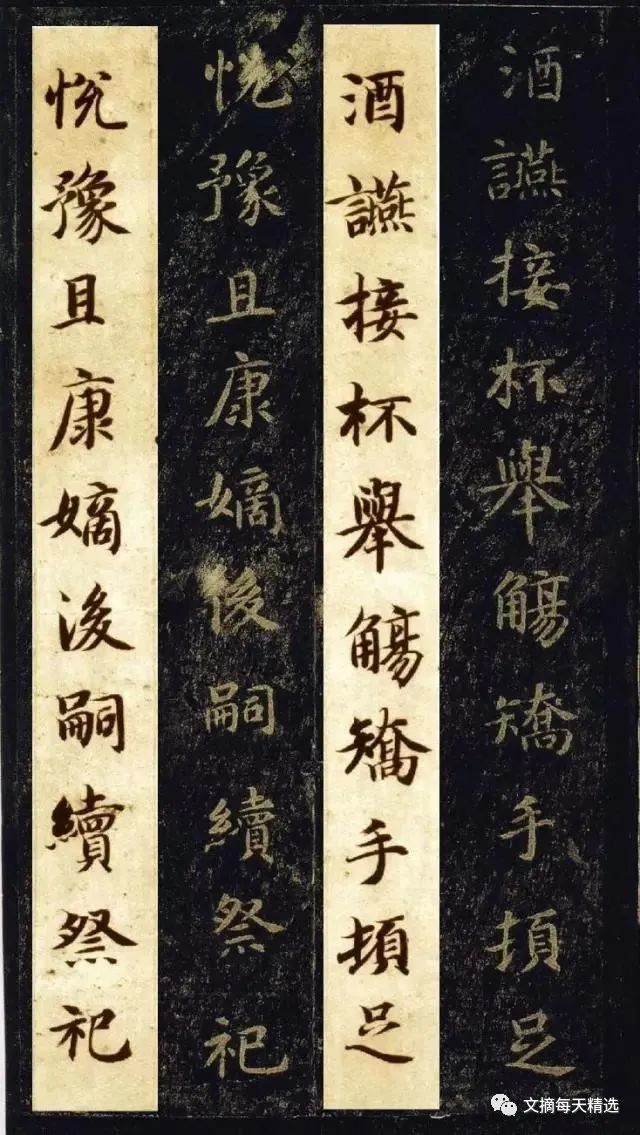 酒讌接杯舉觴矯手頓足
酒讌接杯舉觴矯手頓足
悅豫且康嫡後嗣續祭祀
悅豫且康嫡後嗣續祭祀
文摘每天精选